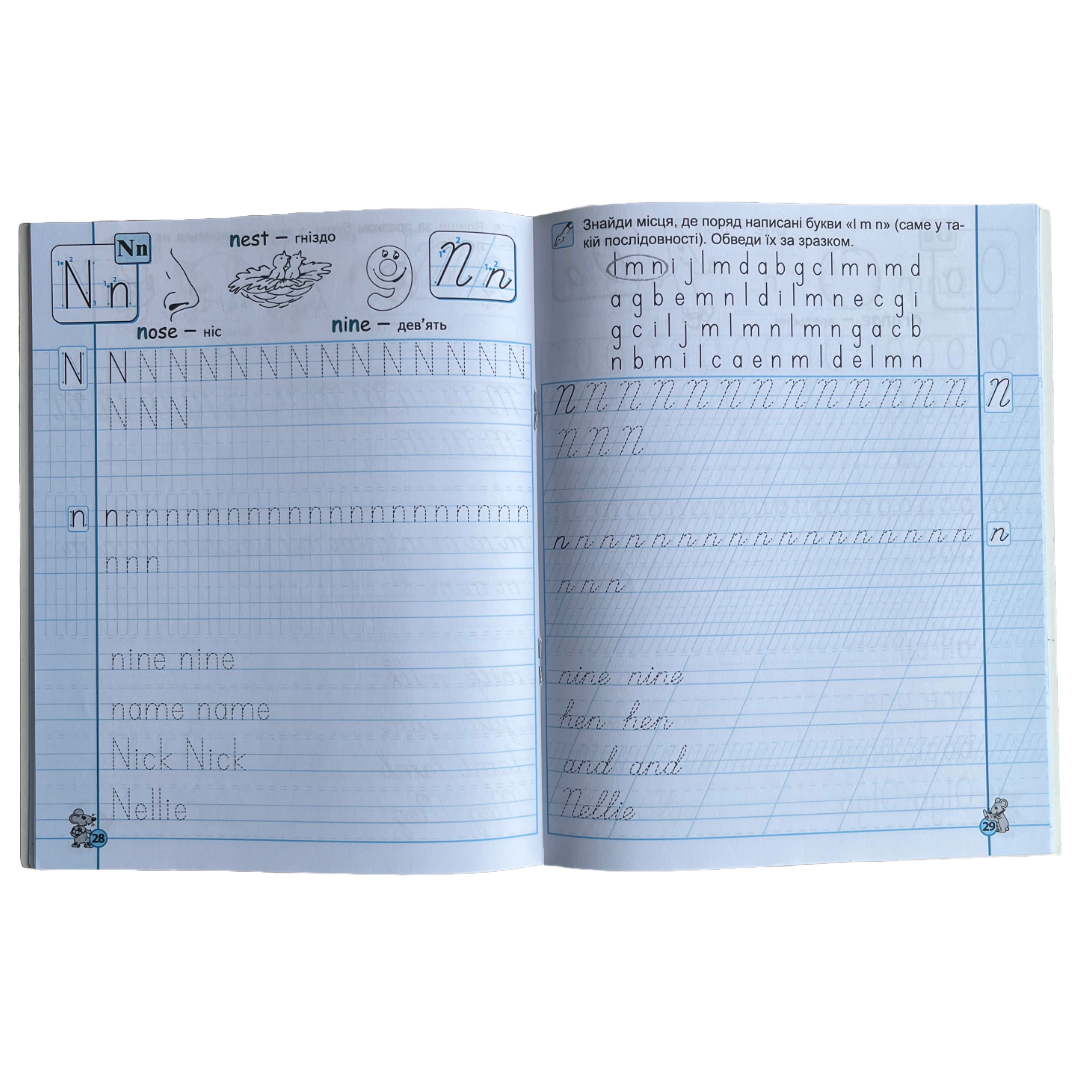 Nn
N n
nest – гніздо
N n
nose – ніс
nine – дев'ять
N N N N N N N N N N N N N N N
N N N
n n n n n n n n n n n n n n n n n n n n n n n n n
n n n
nine nine
name name
Nick Nick
Nellie
28
Знайди місця, де поряд написані букви «l m n» (саме у та-
кій послідовності). Обведи їх за зразком.
l m n i j l m d a b g c l m n m d
a g b e m n l d i l m n e c g i
g c i l j m l m n l m n g a c b
n b m i l c a e n m l d e l m n
N N N N N N N N N N N N N N
N N N
n n n n n n n n n n n n n n n n n n
n n n
nine nine
hen hen
and and
Nellie
29